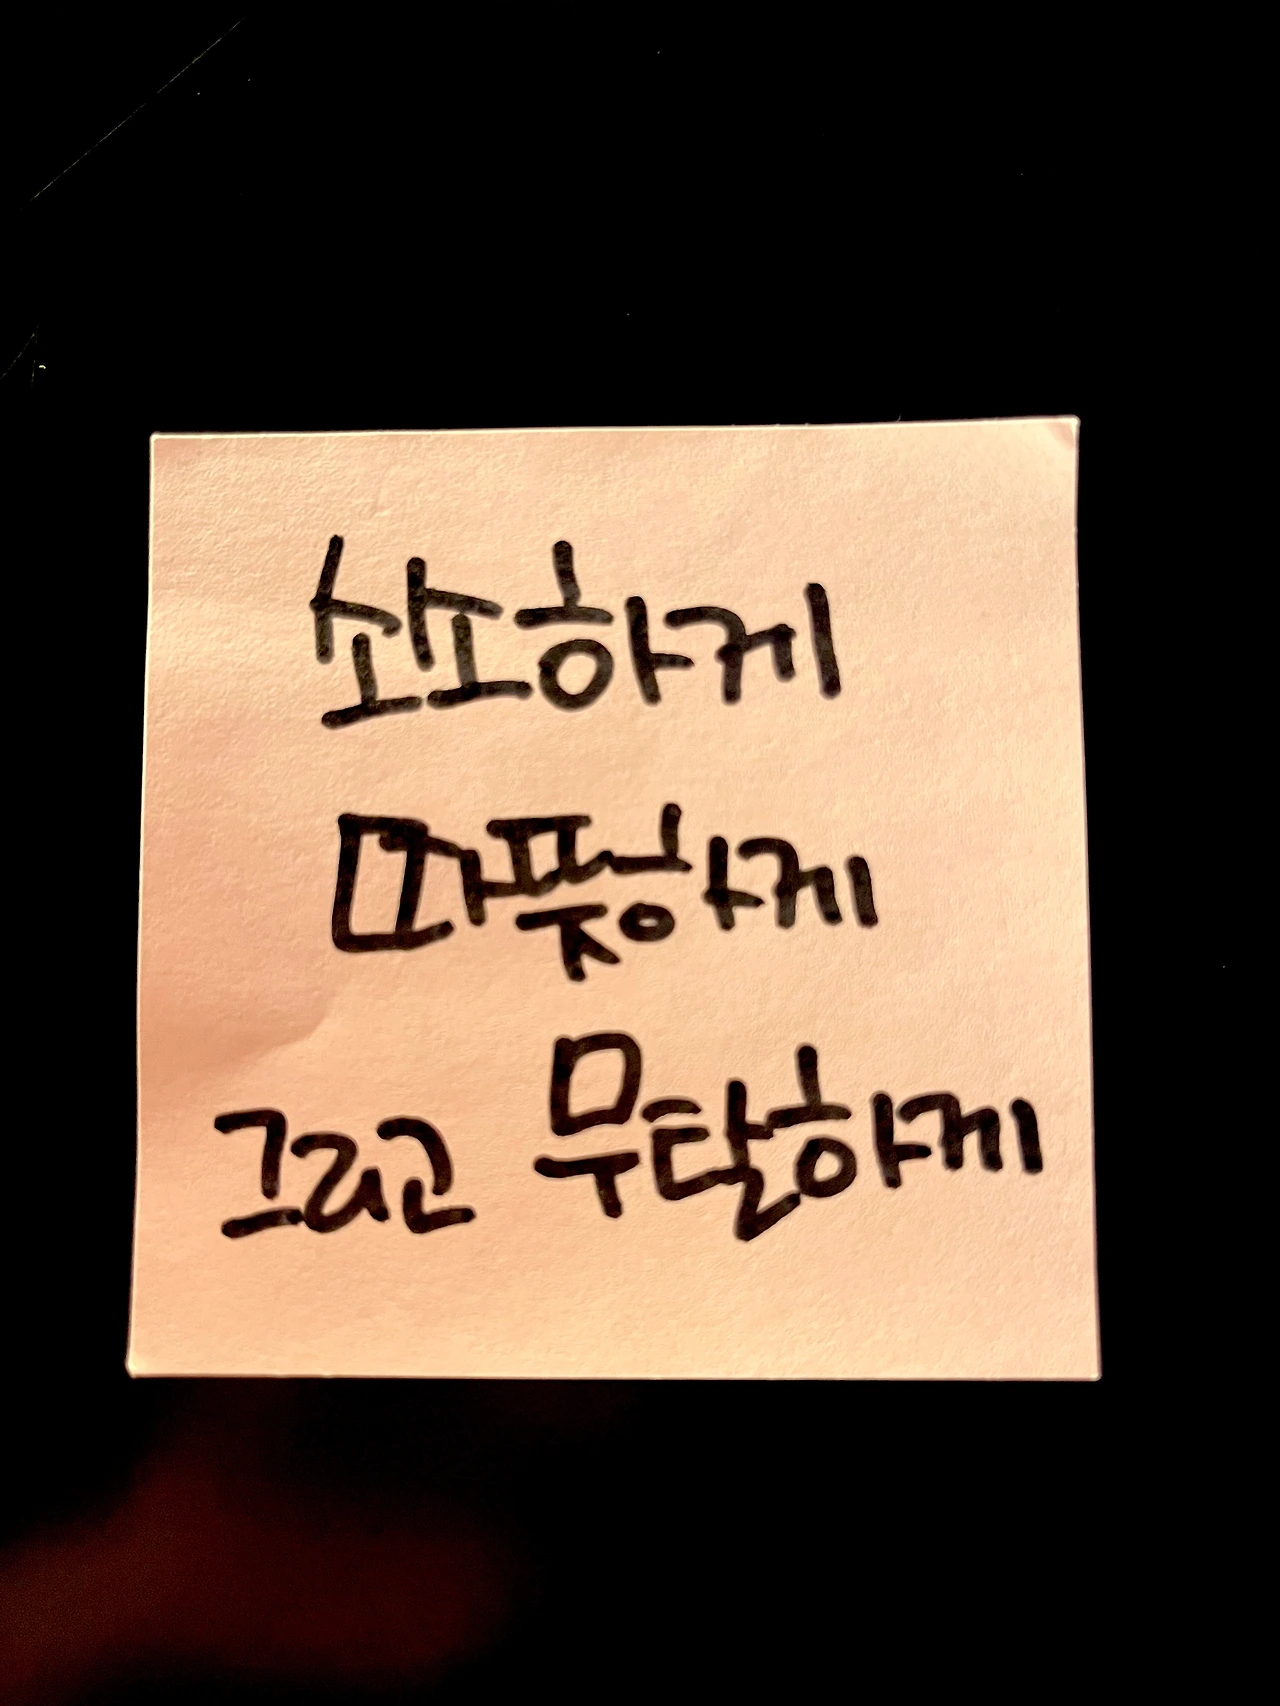 소소하게
따뜻하게
그리고 무탈하게